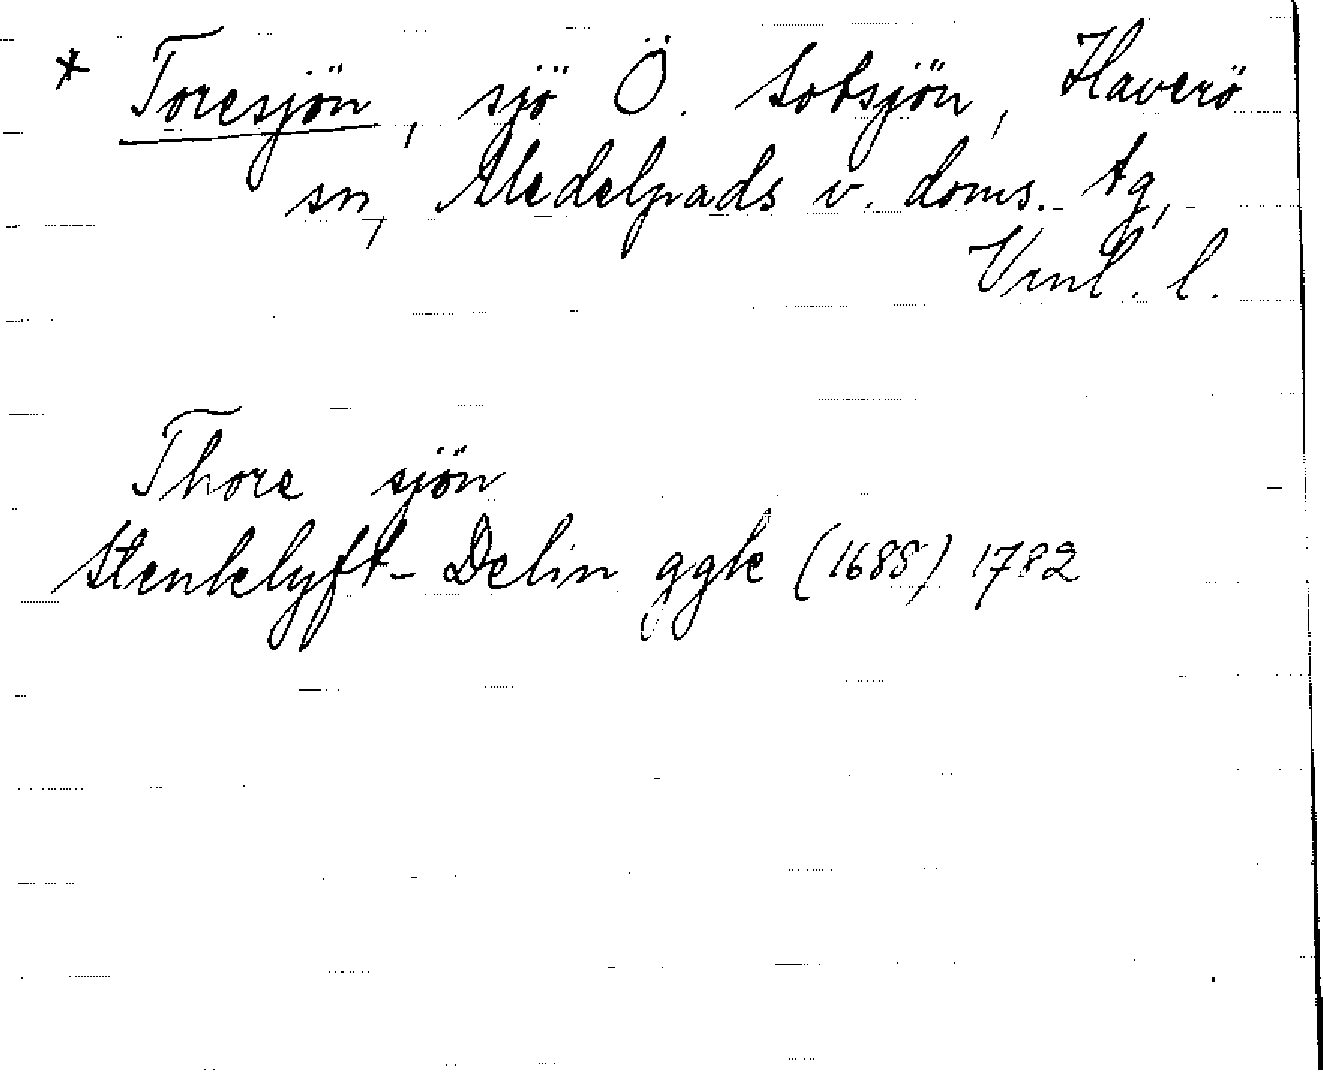 * Toresjön, sjö Ö. Lobsjön, Haverö
sn, Medelpads v. doms. tg,
Vrnl. l.
Thore sjön
Stenklyft - Delin ggk (1688) 1782